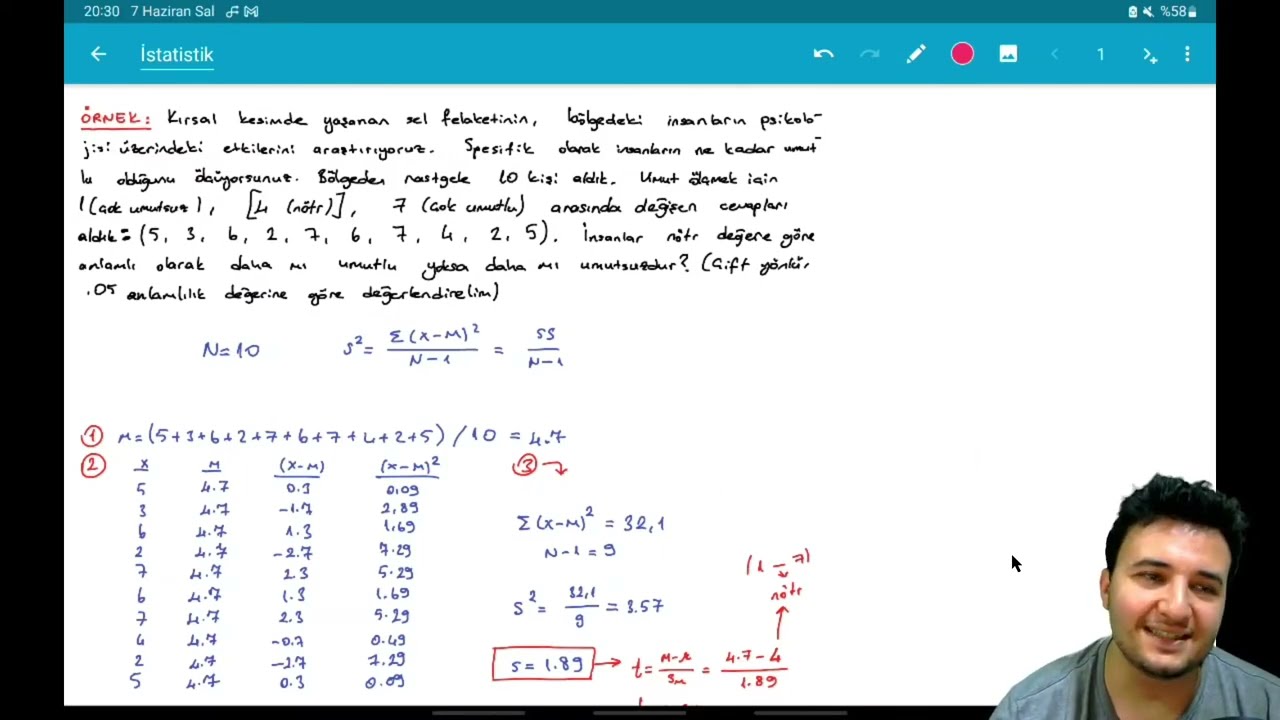 20:30 7 Haziran Sal %58
İstatistik 1
ÖRNEK: Kırsal kesimde yaşanan sel felaketinin, bölgedeki insanların psikolo-
jisi üzerindeki etkilerini araştırıyoruz. Spesifik olarak insanların ne kadar umut-
lu olduğunu ölçüyorsunuz. Bölgeden rastgele 10 kişi aldık. Umut ölçmek için
1 (çok umutsuz), [4 (nötr)], 7 (çok umutlu) arasında değişen cevapları
aldık = (5, 3, 6, 2, 7, 6, 7, 4, 2, 5). İnsanlar nötr değere göre
anlamlı olarak daha mı umutlu yoksa daha mı umutsuzdur? (Çift yönlü,
.05 anlamlılık değerine göre değerlendirelim)
N=10 S² = Σ(X-M)² / N-1 = SS / N-1
① M = (5+3+6+2+7+6+7+4+2+5) / 10 = 4.7
② X M (X-M) (X-M)² ③
5 4.7 0.3 0.09
3 4.7 -1.7 2,89
6 4.7 1.3 1,69
2 4.7 -2.7 7.29
7 4.7 2.3 5.29
6 4.7 1.3 1.69
7 4.7 2.3 5.29
4 4.7 -0.7 0.49
2 4.7 -2.7 7.29
5 4.7 0.3 0.09
Σ(X-M)² = 32,1
N-1 = 9
S² = 32,1 / 9 = 3.57
(1 – 7)
nötr
S = 1.89 → t = M-μ / SM = 4.7-4 / 1.89